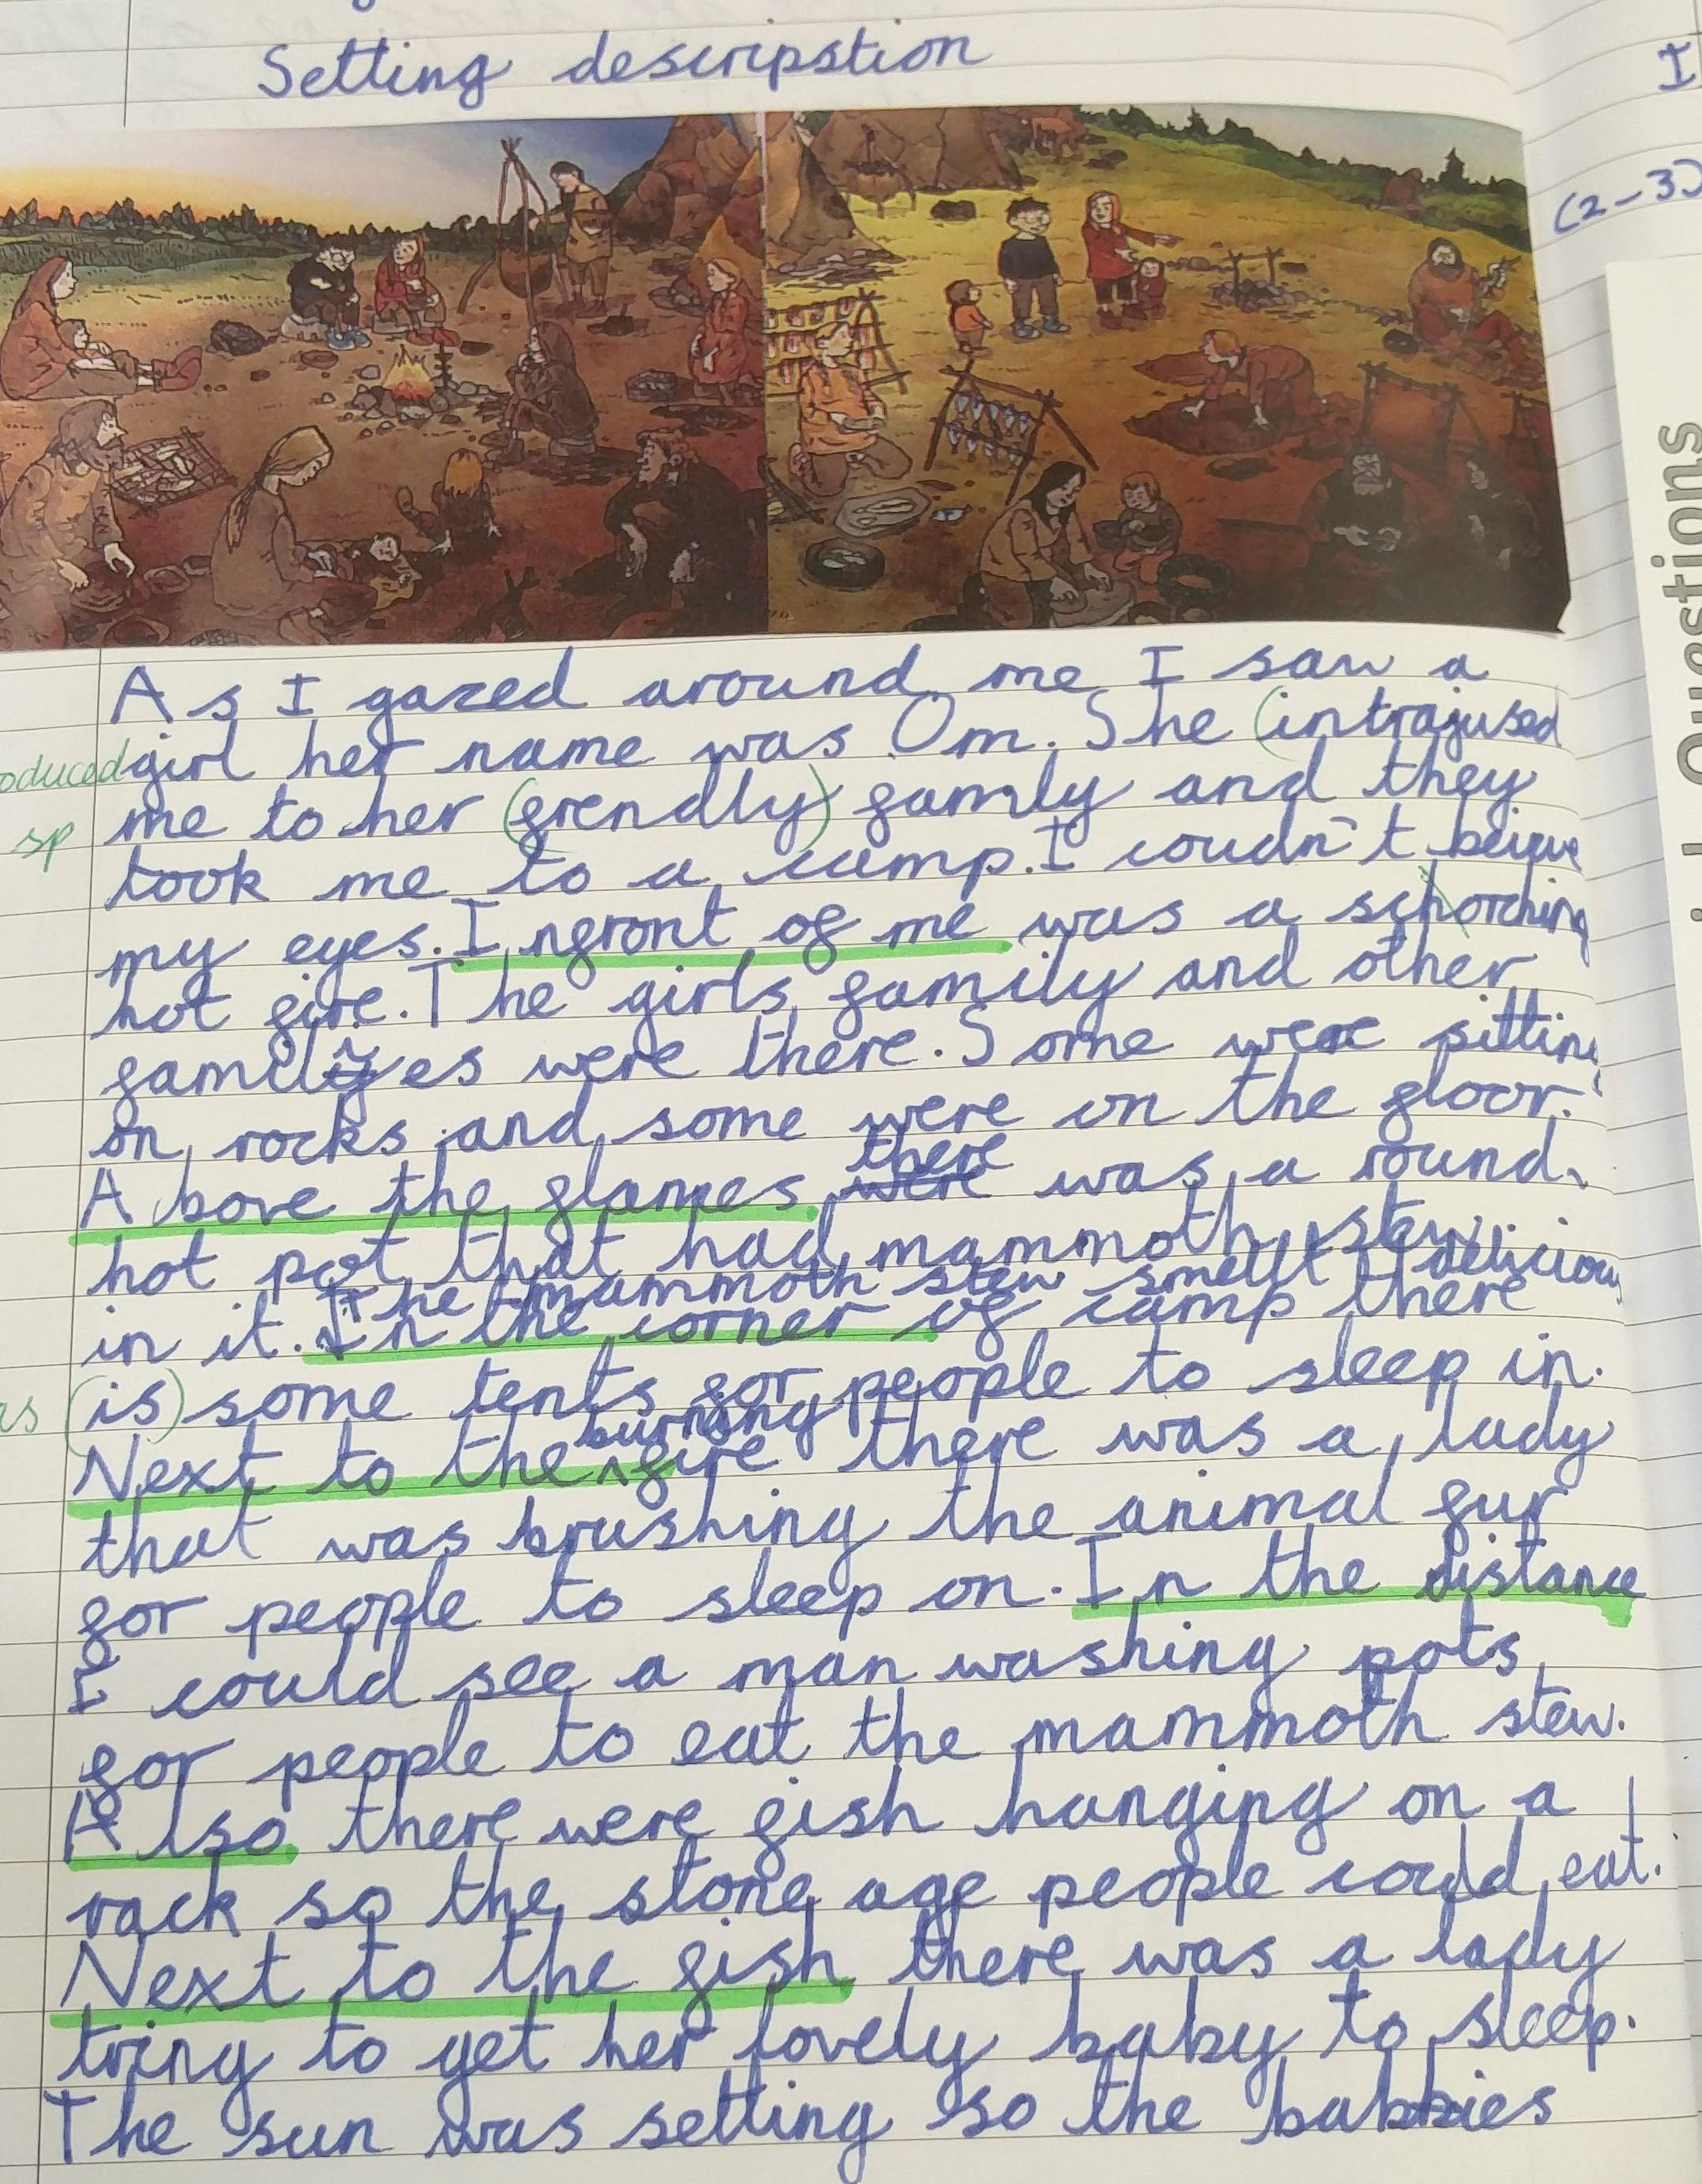 Setting descripstion
I
(2-3)
Questions
As I gazed around me I saw a
oduced girl her name was Om. She (intrajused
sp me to her (frendly) family and they
took me to a camp. I coudn't beigve
my eyes. Infront of me was a schorching
hot fire. The girls family and other
familyes were there. Some were sitting
on rocks and some were on the floor.
there
Above the flames were was a round
hot pot that had mammoth stew
The mammoth stew smellt delicious
in it. In the corner of camp there
as (is) some tents for people to sleep in.
burning
Next to the ^ fire there was a lady
that was brushing the animal fur
for people to sleep on. In the distance
I could see a man washing pots
for people to eat the mammoth stew.
Also there were fish hanging on a
rack so the stone age people could eat.
Next to the fish there was a lady
tring to get her lovely baby to sleep.
The sun was setting so the babbies